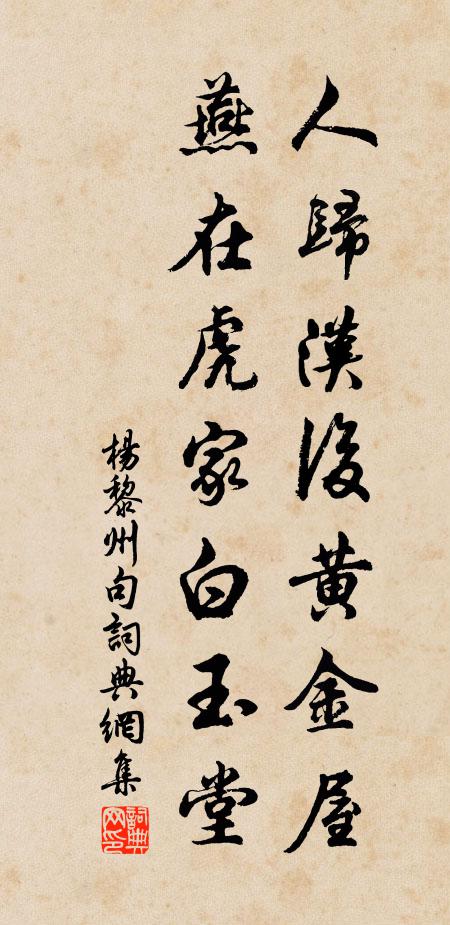 人歸漢後黃金屋
燕在虎家白玉堂
楊黎州句詞典網集
詞典网印